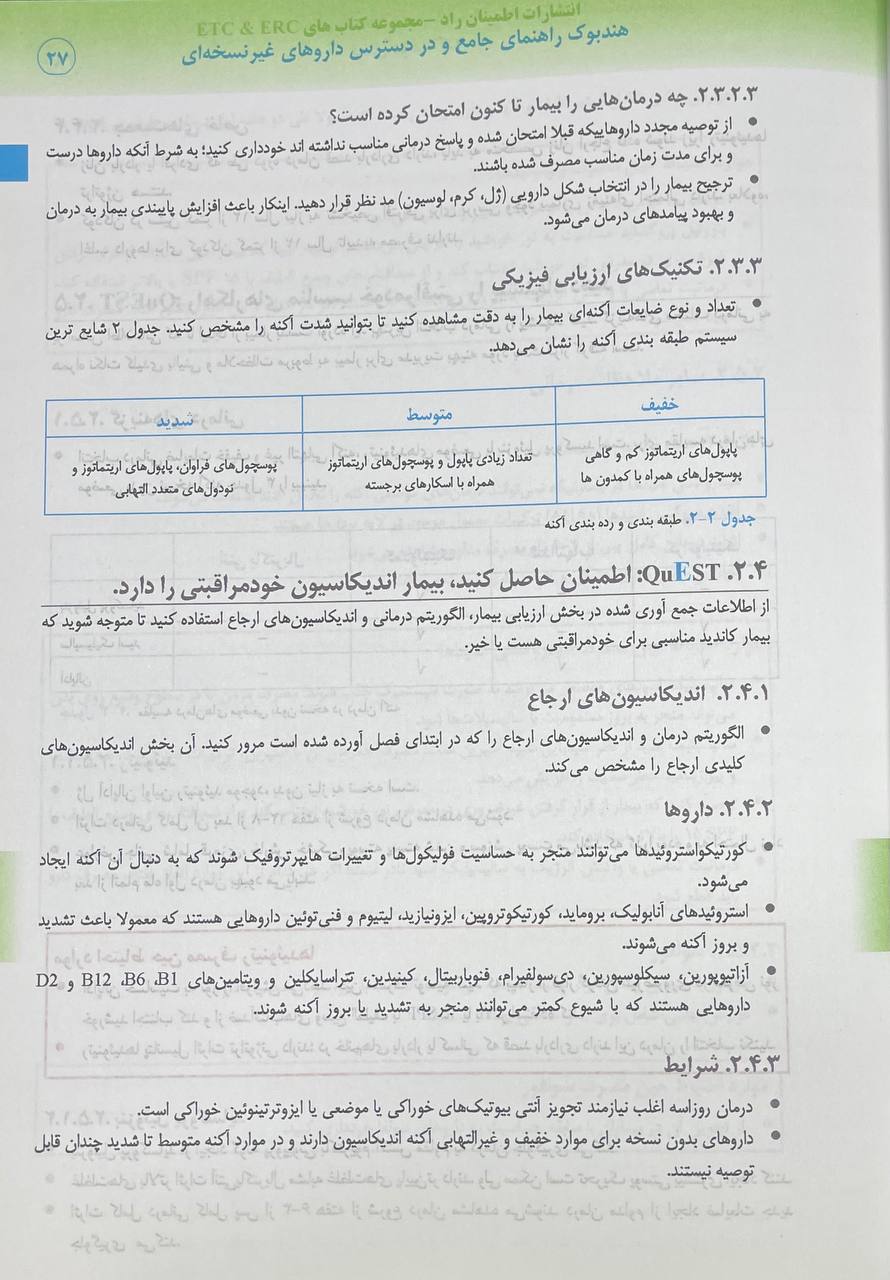 انتشارات اطمینان راد –مجموعه کتاب های ETC & ERC
هندبوک راهنمای جامع و در دسترس داروهای غیرنسخه‌ای
۲۷
۲.۳.۲.۳. چه درمان‌هایی را بیمار تا کنون امتحان کرده است؟
• از توصیه مجدد داروهاییکه قبلا امتحان شده و پاسخ درمانی مناسب نداشته اند خودداری کنید؛ به شرط آنکه داروها درست
و برای مدت زمان مناسب مصرف شده باشند.
• ترجیح بیمار را در انتخاب شکل دارویی (ژل، کرم، لوسیون) مد نظر قرار دهید. اینکار باعث افزایش پایبندی بیمار به درمان
و بهبود پیامدهای درمان می‌شود.
۲.۳.۳. تکنیک‌های ارزیابی فیزیکی
• تعداد و نوع ضایعات آکنه‌ای بیمار را به دقت مشاهده کنید تا بتوانید شدت آکنه را مشخص کنید. جدول ۲ شایع ترین
سیستم طبقه بندی آکنه را نشان می‌دهد.
خفیف متوسط شدید
پاپول‌های اریتماتوز کم و گاهی
پوسچول‌های همراه با کمدون ها
تعداد زیادی پاپول و پوسچول‌های اریتماتوز
همراه با اسکارهای برجسته
پوسچول‌های فراوان، پاپول‌های اریتماتوز و
نودول‌های متعدد التهابی
جدول ۲-۲. طبقه بندی و رده بندی آکنه
۲.۴. QuEST: اطمینان حاصل کنید، بیمار اندیکاسیون خودمراقبتی را دارد.
از اطلاعات جمع آوری شده در بخش ارزیابی بیمار، الگوریتم درمانی و اندیکاسیون‌های ارجاع استفاده کنید تا متوجه شوید که
بیمار کاندید مناسبی برای خودمراقبتی هست یا خیر.
۲.۴.۱. اندیکاسیون‌های ارجاع
• الگوریتم درمان و اندیکاسیون‌های ارجاع را که در ابتدای فصل آورده شده است مرور کنید. آن بخش اندیکاسیون‌های
کلیدی ارجاع را مشخص می‌کند.
۲.۴.۲. داروها
• کورتیکواستروئیدها می‌توانند منجر به حساسیت فولیکول‌ها و تغییرات هایپرتروفیک شوند که به دنبال آن آکنه ایجاد
می‌شود.
• استروئیدهای آنابولیک، بروماید، کورتیکوتروپین، ایزونیازید، لیتیوم و فنی‌توئین داروهایی هستند که معمولا باعث تشدید
و بروز آکنه می‌شوند.
• آزاتیوپورین، سیکلوسپورین، دی‌سولفیرام، فنوباربیتال، کینیدین، تتراسایکلین و ویتامین‌های B1، B6، B12 و D2
داروهایی هستند که با شیوع کمتر می‌توانند منجر به تشدید یا بروز آکنه شوند.
۲.۴.۳. شرایط
• درمان روزاسه اغلب نیازمند تجویز آنتی بیوتیک‌های خوراکی یا موضعی یا ایزوترتینوئین خوراکی است.
• داروهای بدون نسخه برای موارد خفیف و غیرالتهابی آکنه اندیکاسیون دارند و در موارد آکنه متوسط تا شدید چندان قابل
توصیه نیستند.